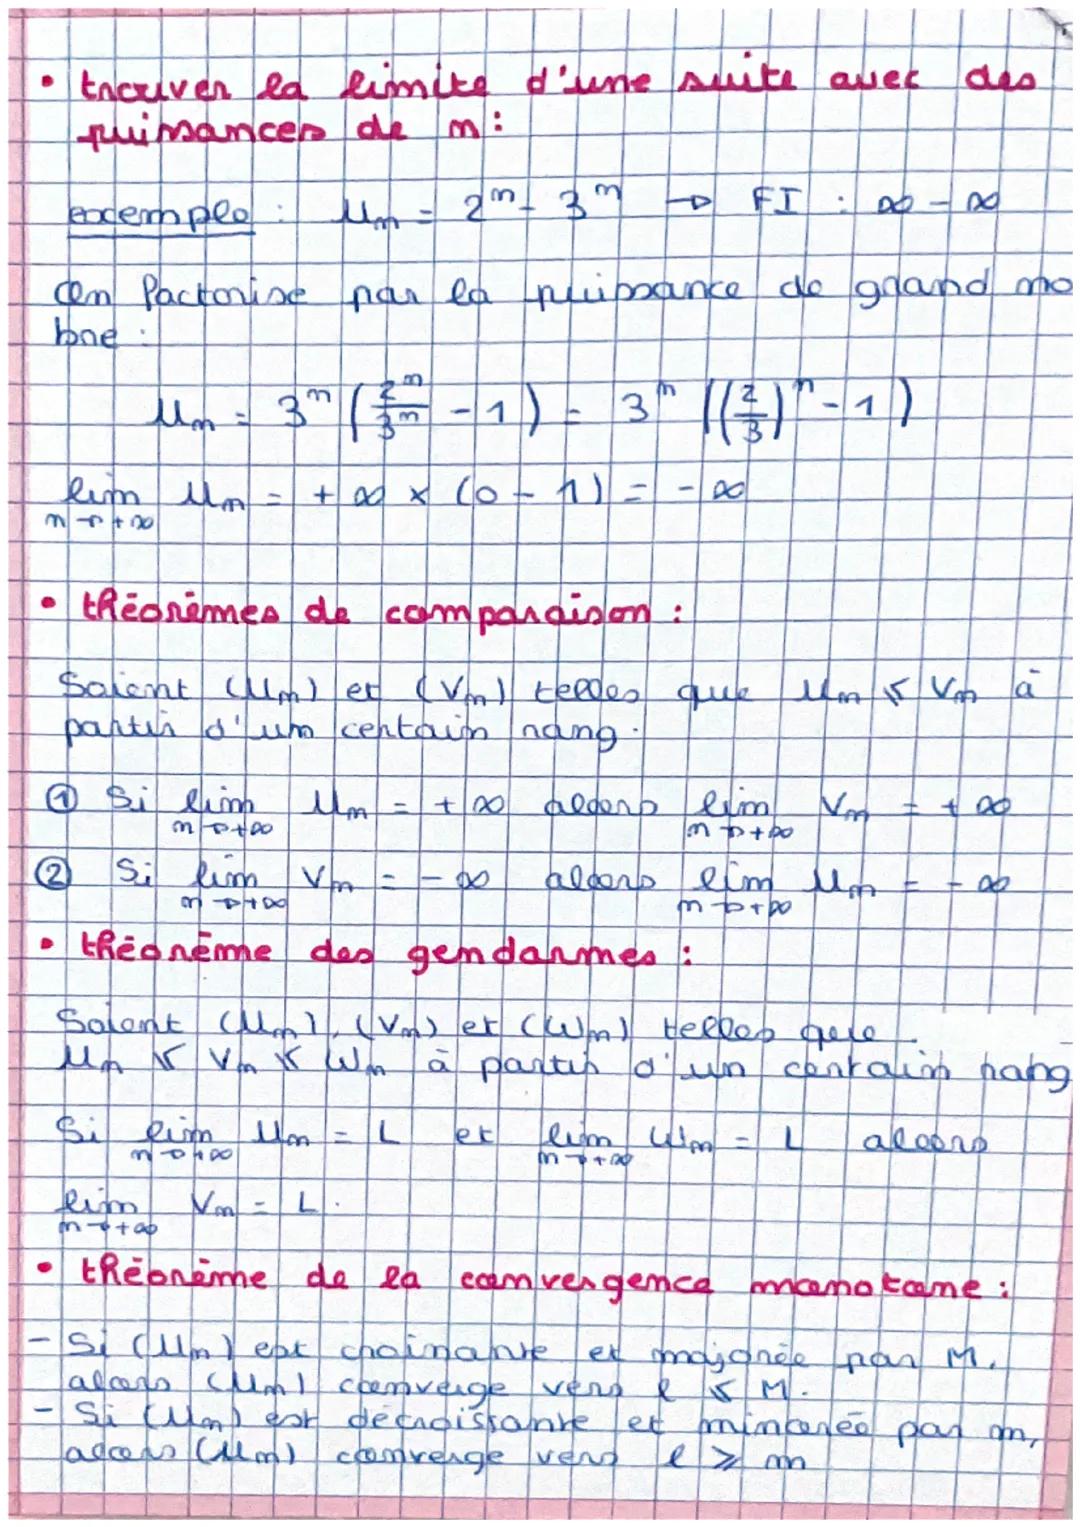 • trouver la limite d'une suite avec des
puissances de n :
exemple : Un = 2^n - 3^n → FI : ∞ - ∞
on factorise par la puissance de grand no
bre :
Un = 3^n (2^n/3^n - 1) = 3^n ((2/3)^n - 1)
lim Un = + ∞ × (0 - 1) = - ∞
n→+∞
• théorèmes de comparaison :
Soient (Un) et (Vn) telles que Un ≤ Vn à
partir d'un certain rang.
① Si lim Un = + ∞ alors lim Vn = + ∞
n→+∞ n→+∞
② Si lim Vn = - ∞ alors lim Un = - ∞
n→+∞ n→+∞
• théorème des gendarmes :
Soient (Un), (Vn) et (Wn) telles que
Un ≤ Vn ≤ Wn à partir d'un certain rang
Si lim Un = L et lim Wn = L alors
n→+∞ n→+∞
lim Vn = L.
n→+∞
• théorème de la convergence monotone :
- Si (Un) est croissante et majorée par M,
alors (Un) converge vers l ≤ M.
- Si (Un) est décroissante et minorée par m,
alors (Un) converge vers l ≥ m